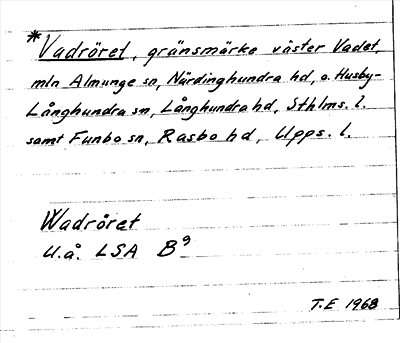 *Vadröret, gränsmärke väster Vadet,
mln Almunge sn, Närdinghundra hd, o. Husby-
Långhundra sn, Långhundra hd, Sthlms. l.
samt Funbo sn, Rasbo hd, Upps. l.
Wadröret
U.å. LSA B⁹
T.E 1968